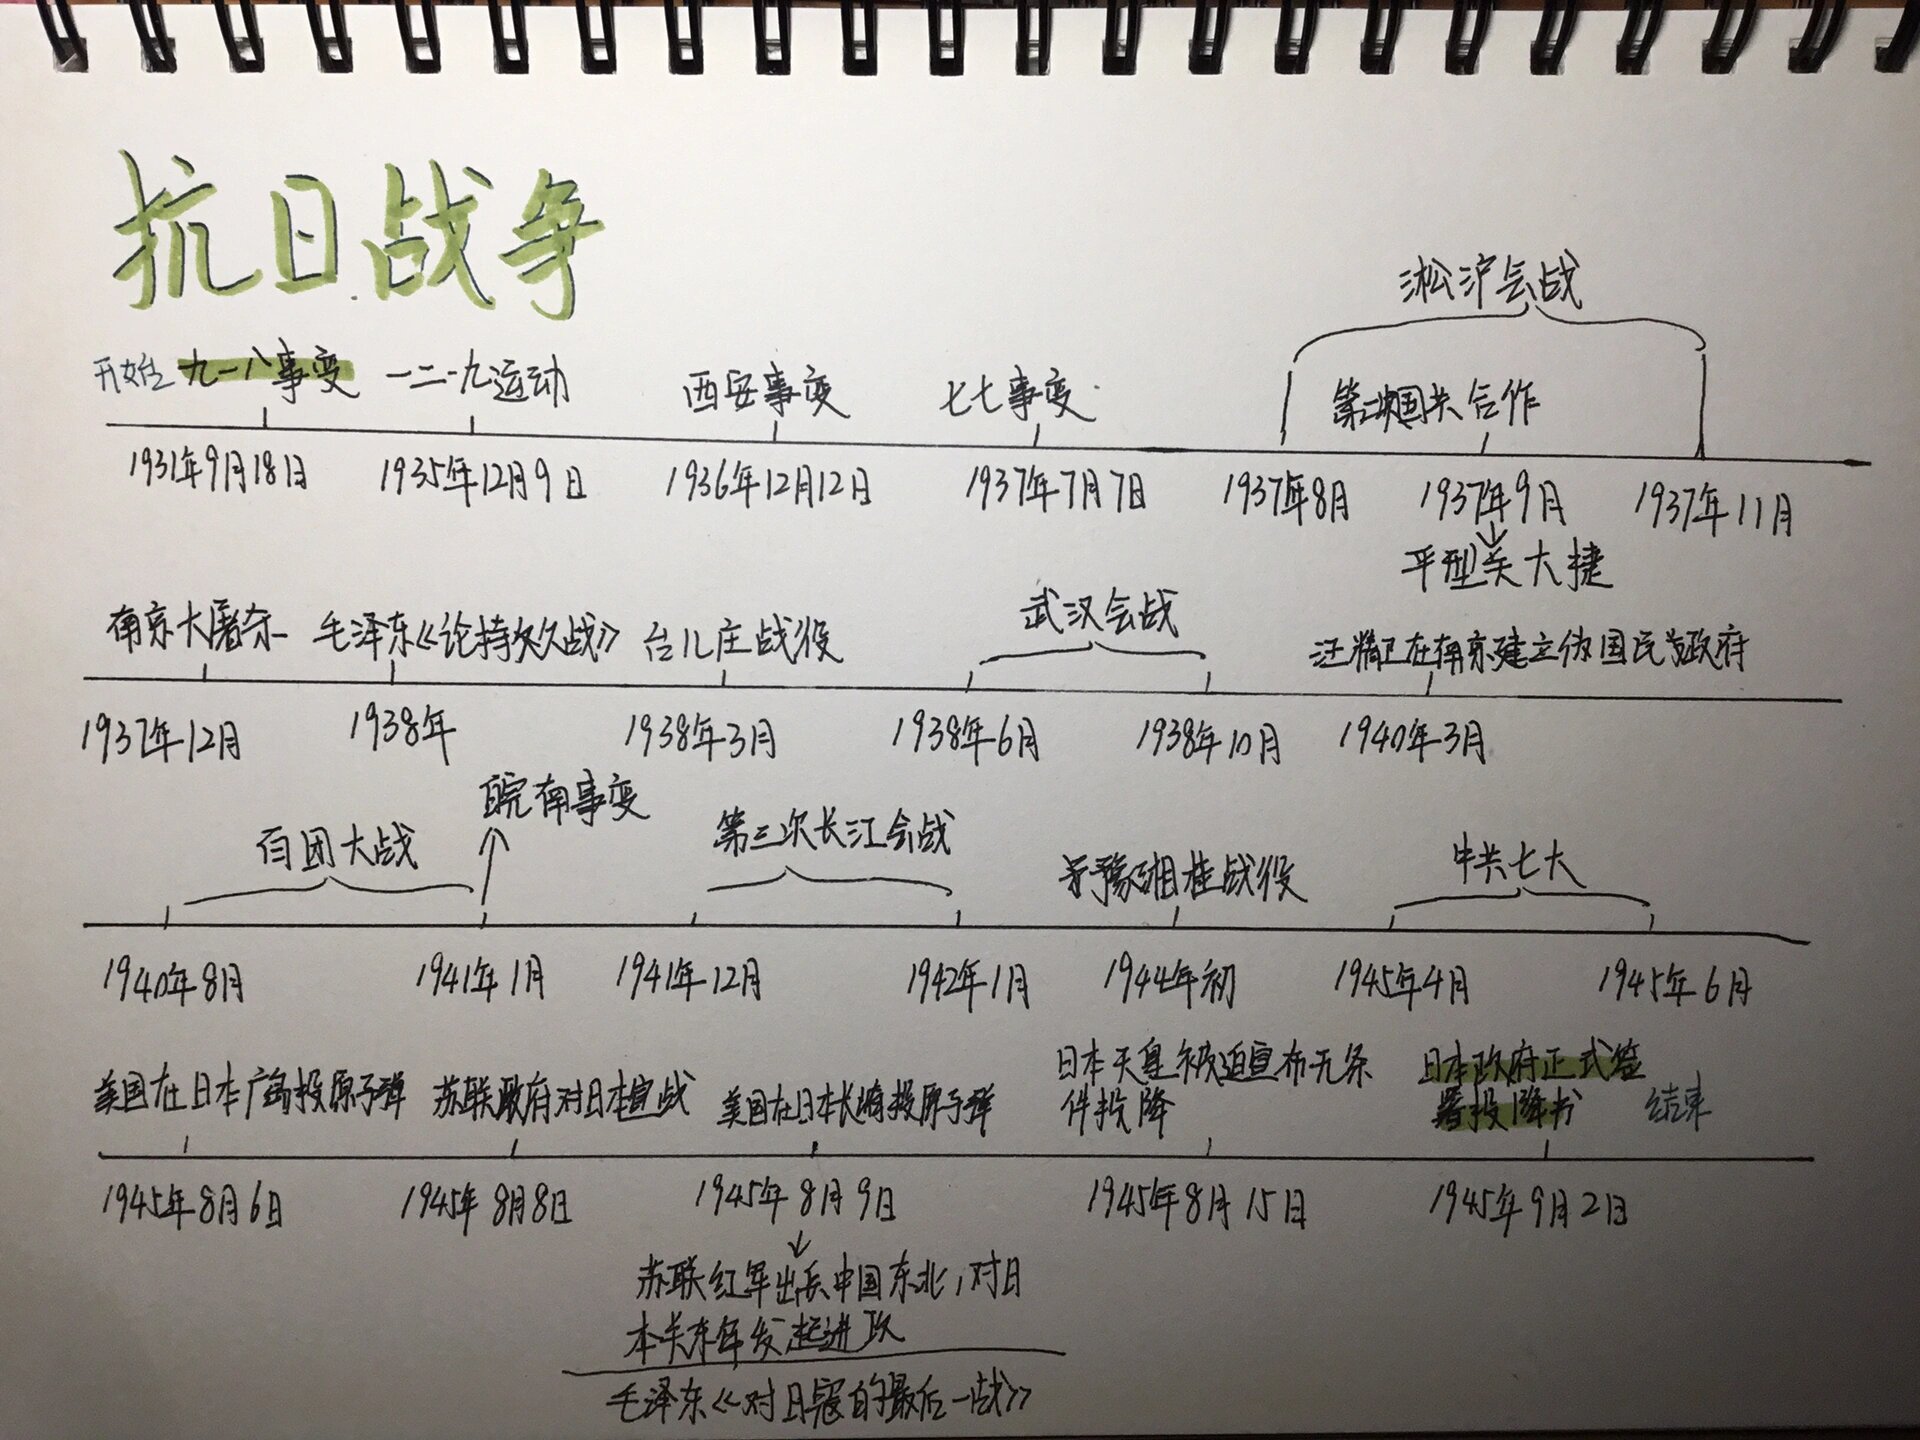 抗日战争
淞沪会战
开始 九一八事变 一二·九运动 西安事变 七七事变 第二次国共合作
1931年9月18日 1935年12月9日 1936年12月12日 1937年7月7日 1937年8月 1937年9月 1937年11月
平型关大捷
武汉会战
南京大屠杀 毛泽东《论持久战》 台儿庄战役 汪精卫在南京建立伪国民政府
1937年12月 1938年 1938年3月 1938年6月 1938年10月 1940年3月
皖南事变
百团大战 第三次长江会战 豫湘桂战役 中共七大
1940年8月 1941年1月 1941年12月 1942年1月 1944年初 1945年4月 1945年6月
美国在日本广岛投原子弹 苏联政府对日本宣战 美国在日本长崎投原子弹 日本天皇被迫宣布无条 日本政府正式签
件投降 署投降书 结束
1945年8月6日 1945年8月8日 1945年8月9日 1945年8月15日 1945年9月2日
苏联红军出兵中国东北,对日
本关东军发起进攻
毛泽东《对日寇的最后一战》